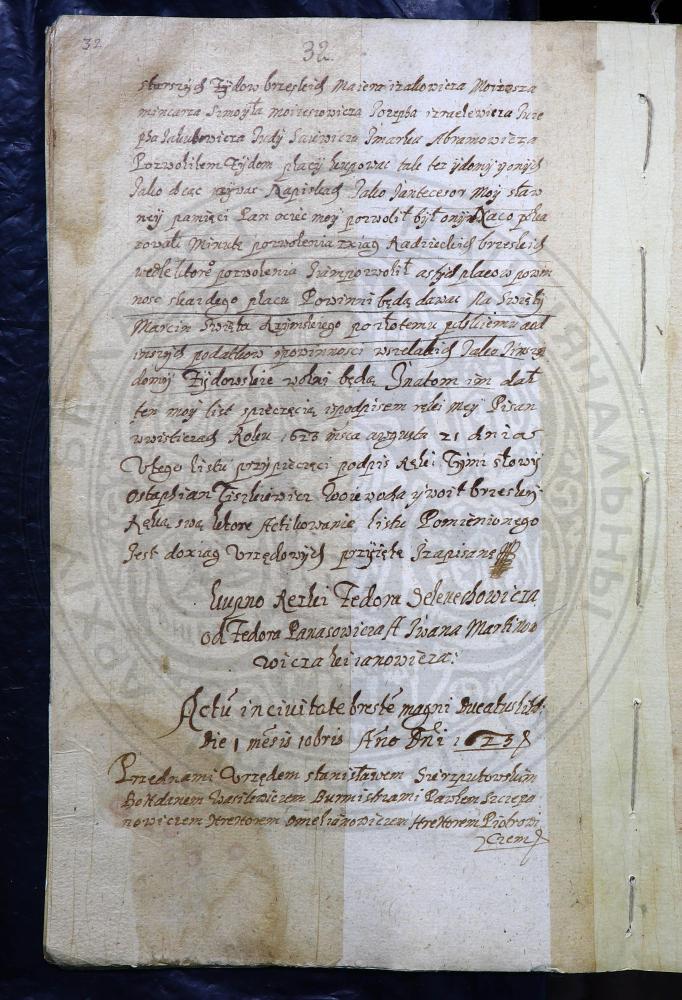 32
32
starszych Żydow brzeskich Maiera Izakowicza Moizesza
mincarza Simoyła moizesowicza Iozepha izraelewicza Ioze
pha Iakubowicza Iudy Sawicza Imarka Abramowicza
Pozwoliłem Żydom placy kupowac tak też y domy y onych
Iako chcąc używac Iako Iantecesor Moy sław
ney pamięci Pan ociec moy pozwolił był onym Naco poka
zowali Minutę pozwolenia zxiąg Radzieckich brzeskich
wedle ktorego pozwolenia Iam pozwolił a s tych placow powin
nosc skazdego placu Powinni będą dawac Na Swięty
Marcin Swięta Rzymskiego po złotemu polskiemu aod
inszych podatkow y powinnosci wszelakich Iako y insze
domy Żydowskie wolni będą Y na tom im dał
ten moy list spieczęcią y podpisem ręki mey Pisan
Roku 1623 msca augusta 21 dnia
Utego listu przy pieczęci podpis Ręki Tymi słowy
Ostaphian Tiszkiewicz Woiewoda y woit brzeskij
Ręką swą ktore Actikowanie listu Pomienionego
Iest do xiąg Urzędowych przyięte Y zapisane
kupno Rezki Fedora Selenechowicza
od Fedora Panasowicza A Iwana Martino
wicza kijanowicza:
Actũ in ciuitate breste magni Ducatus Litt:
Die 1 mẽsis 10bris Año Dñi 1623
Przed nami Urzędem stanisławem Swirzputowskim
Bohdanem Wasilewiczem Burmistrami Pawłem Szczepa
nowiczem Hrehorem Omelianowiczem Hrehorem Piotrowi
czem